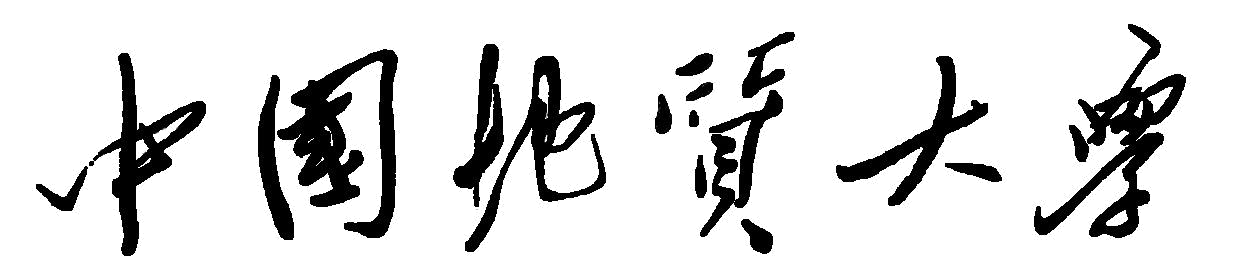 中國地質大學